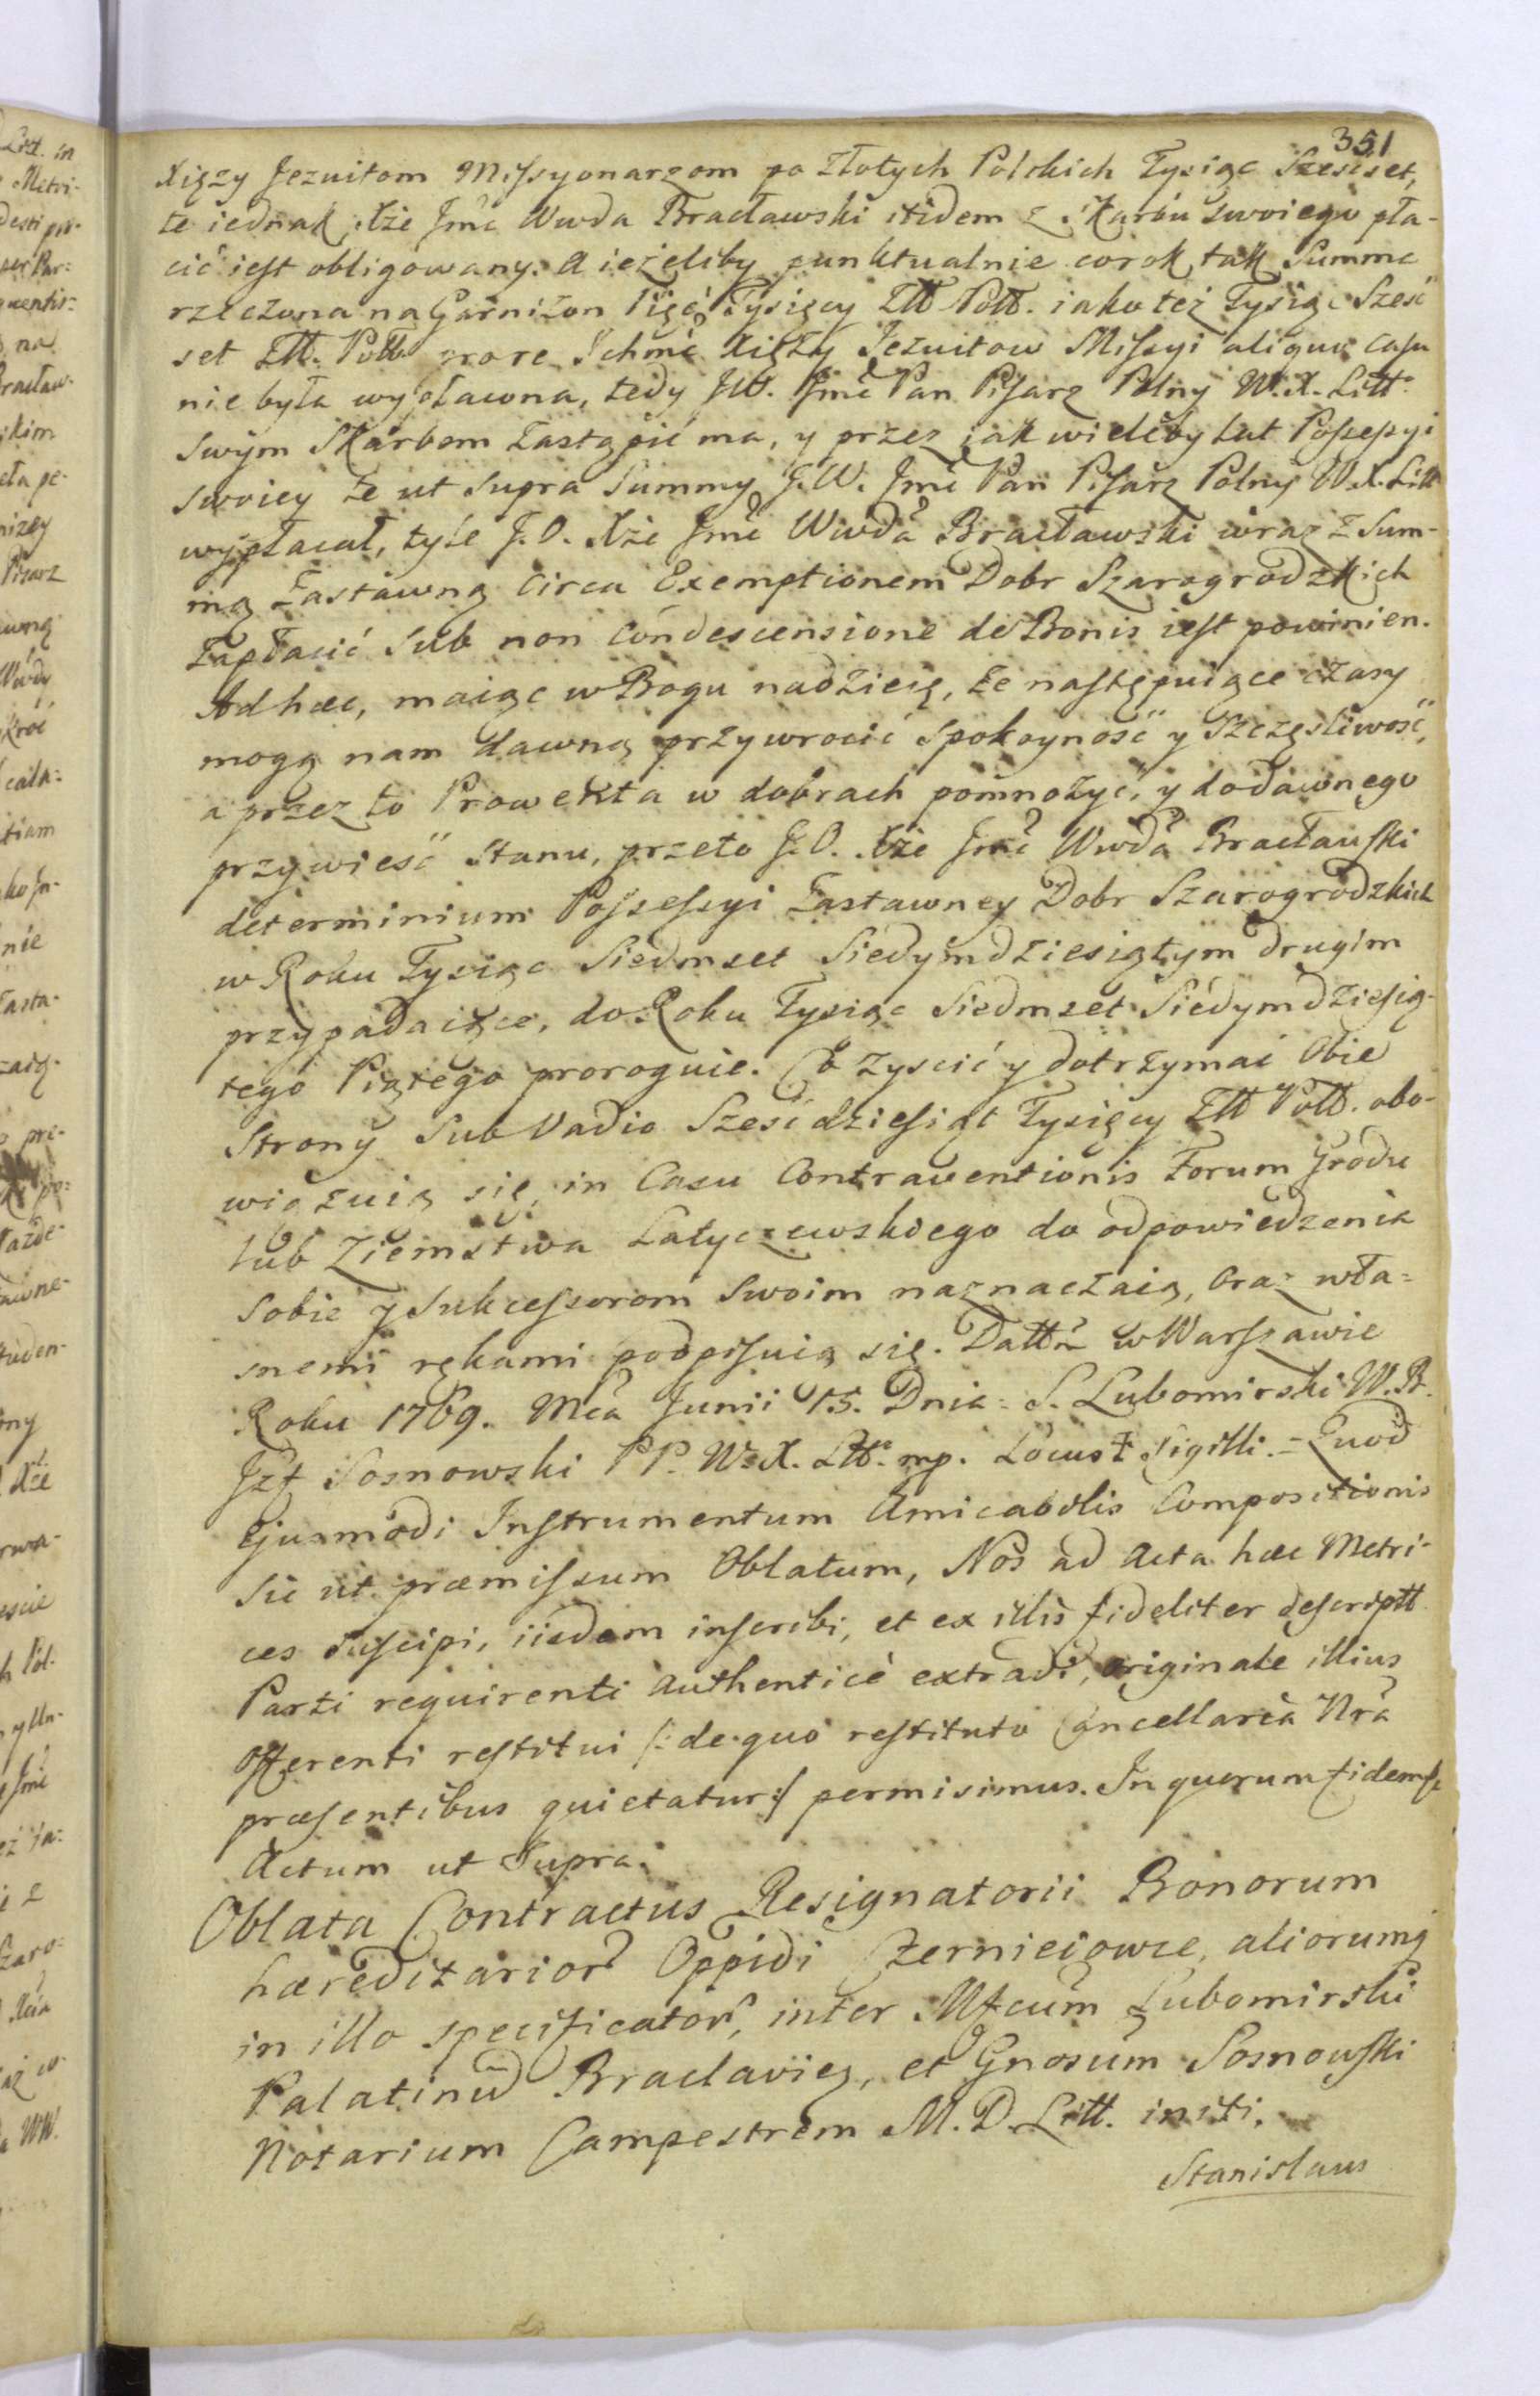 351
Xięzy Jezuitom Missyonarzom po Złotych Polskich Tysiąc Szescset,
te iednak Xże Jmć Wwda Bracławski itidem z Skarbu swoiego pła-
cić iest obligowany. A ieżeliby punktualnie corok tak Summa
rzeczona na Garnizon Pięć Tysięcy Złł Poll. iako też Tysiąc Sześć
set Złł. Poll. pro re Ichmć Xięży Jezuitow Missyi aliquo casu
nie była wypłacona, tedy JW. Jmć Pan Pisarz Polny W.X. Litt.
swym Skarbem Zastąpić ma, y przez iak wieleby lat Possessyi
swoiey te ut supra Summy J.W. Jmć Pan Pisarz Polny W.X. Litt
wypłacał, tyle J.O. Xże Jmć Wwda Bracławski wraz z Sum-
mą Zastawną Circa Exemptionem Dobr Szarogrodzkich
Zapłacić Sub non Condescensione de Bonis iest powinien.
Ad hæc, maiąc w Bogu nadzieię, że następuiące czasy
mogą nam dawną przywrocić spokoyność y Szczęsliwość,
a przez to Prowenta w dobrach pomnożyć, y do dawnego
przywieść Stanu, przeto J.O. Xże Jmć Wwda Bracławski
determinium Possessyi Zastawney Dobr Szarogrodzkich
w Roku Tysiąc Siedmset Siedymdziesiątym drugim
przypadaiące, do Roku Tysiąc Siedmset Siedymdziesią-
tego Piątego proroguie. Co zyscić y dotrzymać Obie
Strony Sub Vadio Sześćdziesiąt Tysięcy Złł Poll. obo-
wiązuią się, in Casu Contraventionis Forum Grodu
lub Ziemstwa Latyczewskiego do odpowiedzenia
sobie y sukcessorom swoim naznaczaią, Oraz wła-
snemi rękami podpisuią się. Datt w Warszawie
Roku 1769. Mca Junii 15. Dnia. S. Lubomirski W.B.
Jzf Sosnowski P.P. W.X. Litt. mp. Locus † Sigilli. = Quod
Ejusmodi Instrumentum Amicabilis Compositionis
sic ut præmissum Oblatum, Nos ad Acta hæc Metri-
ces suscipi, iisdem inscribi, et ex illis fideliter descriptt
Parti requirenti authenticè extradi, originale illius
Offerenti restitui /: de quo restituto Cancellaria Nra
præsentibus quietatur :/ permisimus. In quorum fidem &
Actum ut Supra.
Oblata Contractus Resignatorii Bonorum
hæreditarior Oppidi Czernieiowce, aliorumq
in illo specificator, inter Mfcum Lubomirski
Palatinū Braclavień, et Gnosum Sosnowski
Notarium Campestrem M.D. Litt. initi.
Stanislaus